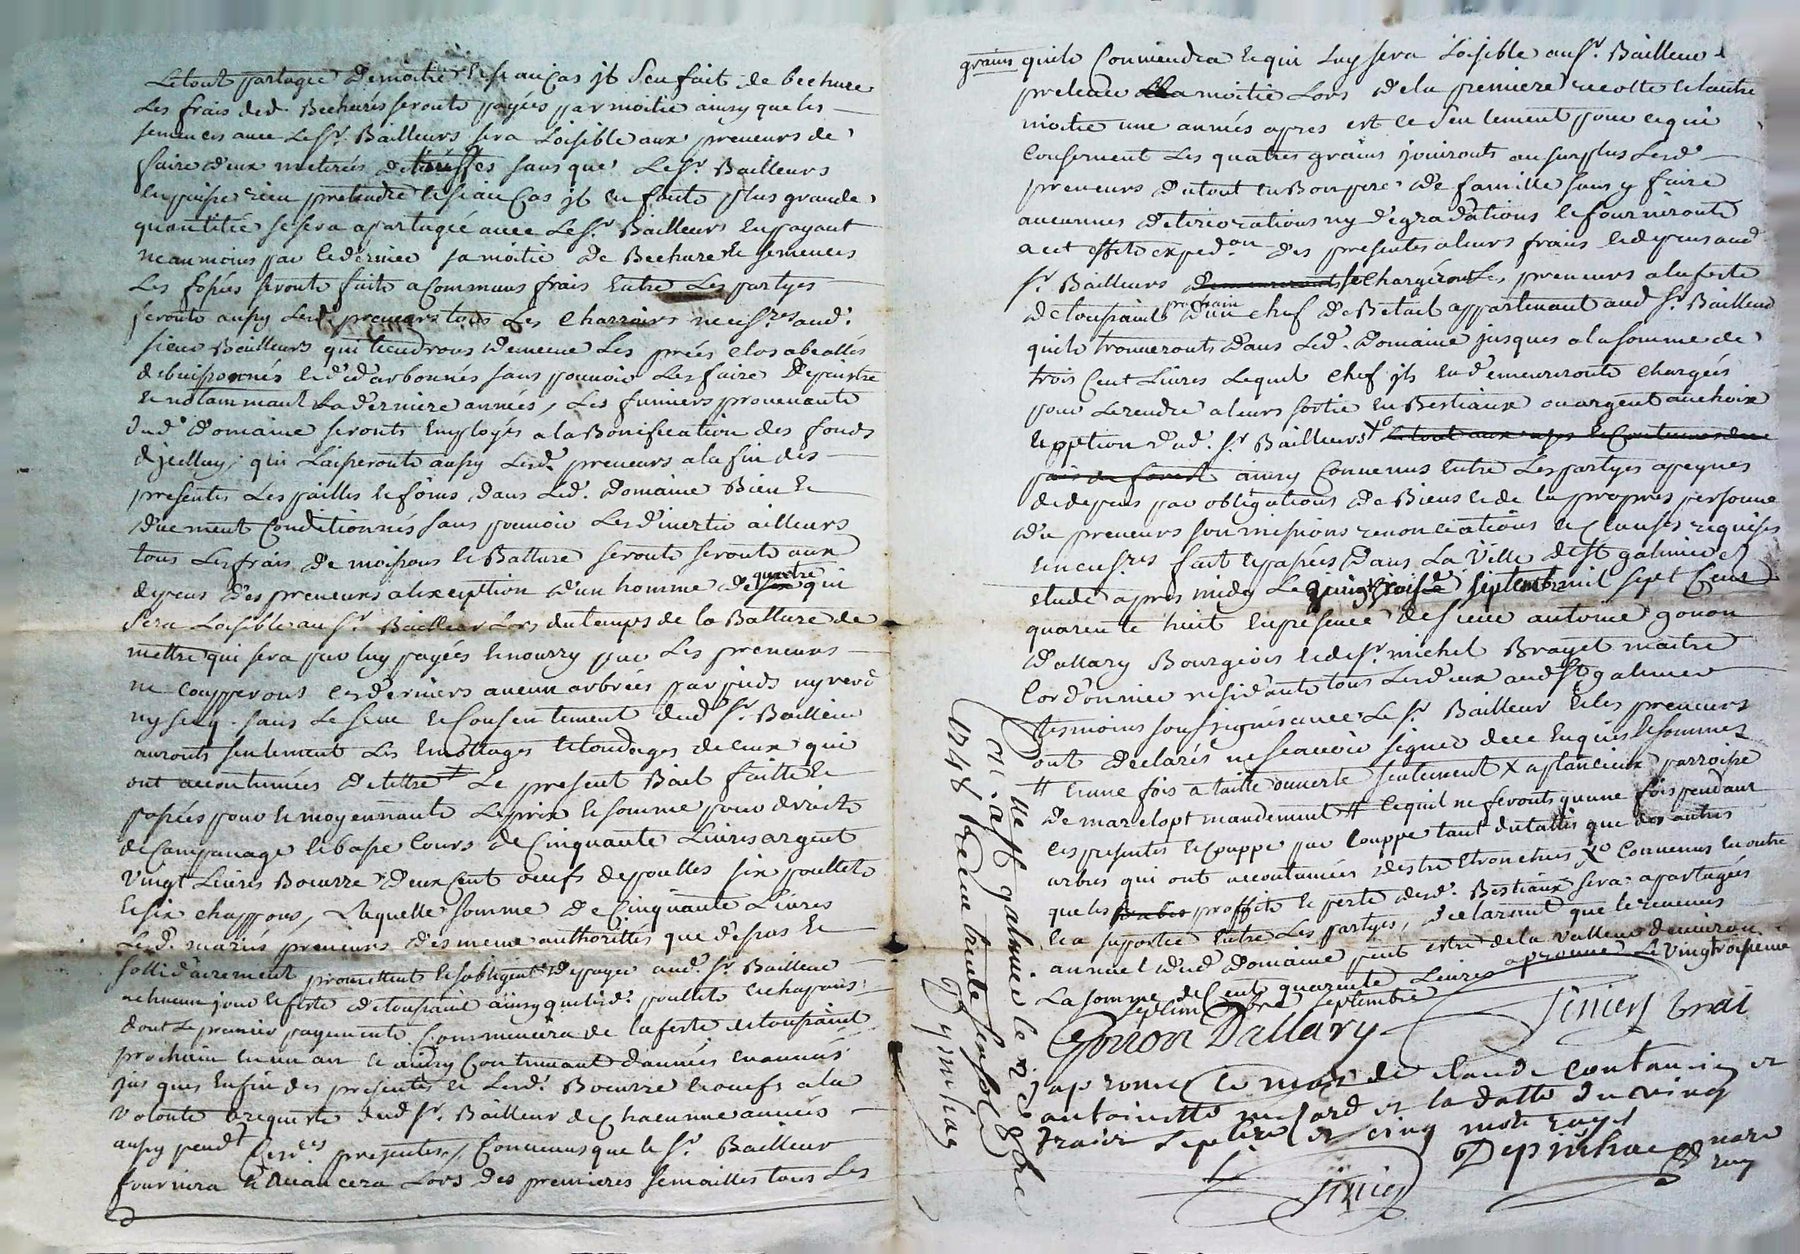 Le tout partagée de moitié & si au cas jt s'en fait de bechure
Les frais desd. Bechures seronts payées par moitié ainsy que les
semences avec Le Sr. Bailleurs sera Loisible aux preneurs de
faire deux meterées de truffes sans que Le Sr. Bailleurs
en puisse rien pretendre et si au Cas jt en fonts plus grande
quantitée se sera apartagée avec Le Sr. Bailleurs en payant
neanmoins par le dernier sa moitié de Bechure & semences
Les fossés seronts faits a Communs frais Entre Les partyes
feronts aussy lesd. preneurs tous Les Charroirs necess.res aud.
sieur Bailleurs qui tiendrons de meme Les prées clos
debuissonnés et sans pouvoir Les faire
& notammant La derniere année, Les fumiers provenants
dud. Domaine seronts Employés a la Bonification des fonds
d'jcelluy, qui Laisseronts aussy Lesd. preneurs a la fin des
presentes Les pailles & foins dans Led. Domaine Bien &
duement Conditionnés sans pouvoir Les divertir ailleurs
tous Les frais de moissons & Batture seronts seronts aux
depens des preneurs a lexeption d'un homme de quattre qui
Sera Loisible au Sr. Bailleur Lors du temps de la Batture de
mettre qui sera par luy payées & nourry par Les preneurs
ne coupperons ces derniers aucun arbrées par pieds ny verd
ny secq sans Le sceu & Consentement dud Sr. Bailleur
auronts seulement Les Emottages & tondages de ceux qui
ont accoutumées detettre Le present Bail faitte &
passées pour & moyennants Le prix & somme pour droits
de Campanage & basse Cours de Cinquante Livres argent
vingt Livres Boeurre deux Cent oeufs de poulles six poullets
& six chappons, Laquelle somme de Cinquante Livres
Lesd. mariés preneurs des meme authorittés que dessus &
sollidairement promettent & sobligent de payer aud. Sr. Bailleur
achacun jour & feste de toussaint ainsy que lesd. poullets & chapons
dont Le premier payements Commencera de la feste de toussaint
prochain en un an & ainsy Continuant dannées en années
jusques Enfin des presentes & Lesd. Boeurre & oeufs a la
volonté & requeste dud Sr. Bailleur de Chacunne années
aussy pendt Ces presentes, Convenus que le Sr. Bailleur
fournira & avancera Lors des premieres semailles tous Les
grains quils Conviendra & qui Luy sera Loisible au Sr. Bailleur
prelever La moitié Lors de la premiere recolte & lautre
moitié une années apres est ce seulement pour ce qui
Consernent Les quatres grains jouironts au surplus Lesd.
preneurs du tout en Bon pere de famille sans y faire
aucunnes deteriorations ny degradations & fournironts
a cet effets exped.on des presentes a leurs frais & depens aud
Sr. Bailleurs se Chargeront Les preneurs a la feste
de toussaints prochain d'un chef de Betail appartenant aud Sr. Bailleur
quils trouveronts dans Led. Domaine jusques a la somme de
trois Cent Livres Lequel Chef jls en demeureronts chargées
pour Le rendre a leurs sortie En Bestiaux ou argent au choix
& option dud. Sr. Bailleurs Xo Le tout aux us & Coutumes du
païs de forest ainsy Convenus Entre Les partyes a peynes
de depens par obligations de Biens & de la propres personne
du preneurs soumissions renonciations & Clauses requises
& necess.res fait & passées dans La Ville de St galmier
etude apres midy Le vingt trois.e septembre mil sept Cent
quarente huit En presence de sieur antoine gonon
Dallary Bourgeois & de Sr michel Brayet maitre
Cordonnier residants tous Les deux aud St galmier
tesmoins soussignés avec Le Sr. Bailleur & les preneurs
ont declarés ne scavoir signer de ce Enquis & sommés
# & une fois a taille ouverte seulement X a plancieux parroisse
De marclopt mandement # & quil ne feronts quune fois pendant
ces presentes & couppe par couppe tant du taillis que des autres
arbres qui ont accoutumées destre Etronchés Xo Convenus En outre
que les proffits & perte desd. Bestiaux sera apartagées
& a supportée Entre Les partyes, declarent que le revenus
annuel dud Domaine peut estre de la valleur d'environ
La somme de Cent quarente Livres aprouvé Le Vingt troisieme
septembre
Gonon Dallary
Siniey Brai
japrouve Le mot de claude contancin et
antoinette et la datte du vingt
traize Septbre et cinq mots rayés
Depinhac nore
roy
Siniey
Clle a St galmier le 8bre
1748 Receu trente six sols
Depinhac